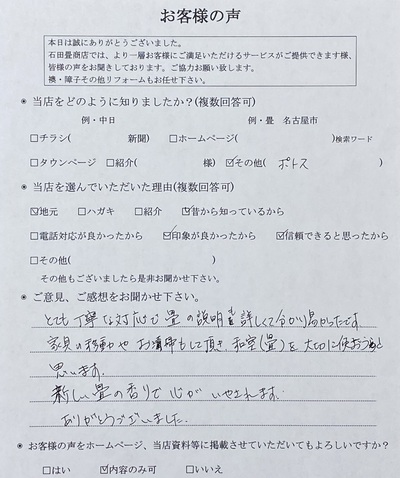 お客様の声
本日は誠にありがとうございました。
石田畳商店では、より一層お客様にご満足いただけるサービスがご提供できます様、
皆様の声をお聞きしております。ご協力お願い致します。
襖・障子その他リフォームもお任せ下さい。
◉ 当店をどのように知りましたか?(複数回答可)
例・中日 例・畳 名古屋市
□チラシ( 新聞) □ホームページ( )検索ワード
□タウンページ □紹介( 様) ☑その他( ポトス )
◉ 当店を選んでいただいた理由(複数回答可)
☑地元 □ハガキ □紹介 ☑昔から知っているから
□電話対応が良かったから ☑印象が良かったから ☑信頼できると思ったから
□その他( )
その他もございましたら是非お聞かせ下さい。
◉ ご意見、ご感想をお聞かせ下さい。
とても丁寧な対応で畳の説明も詳しくて分かり易かったです。
家具の移動やお掃除もして頂き和室(畳)を大切に使おうと
思います。
新しい畳の香りで心がいやされます。
ありがとうございました。
◉ お客様の声をホームページ、当店資料等に掲載させていただいてもよろしいですか?
□はい ☑内容のみ可 □いいえ